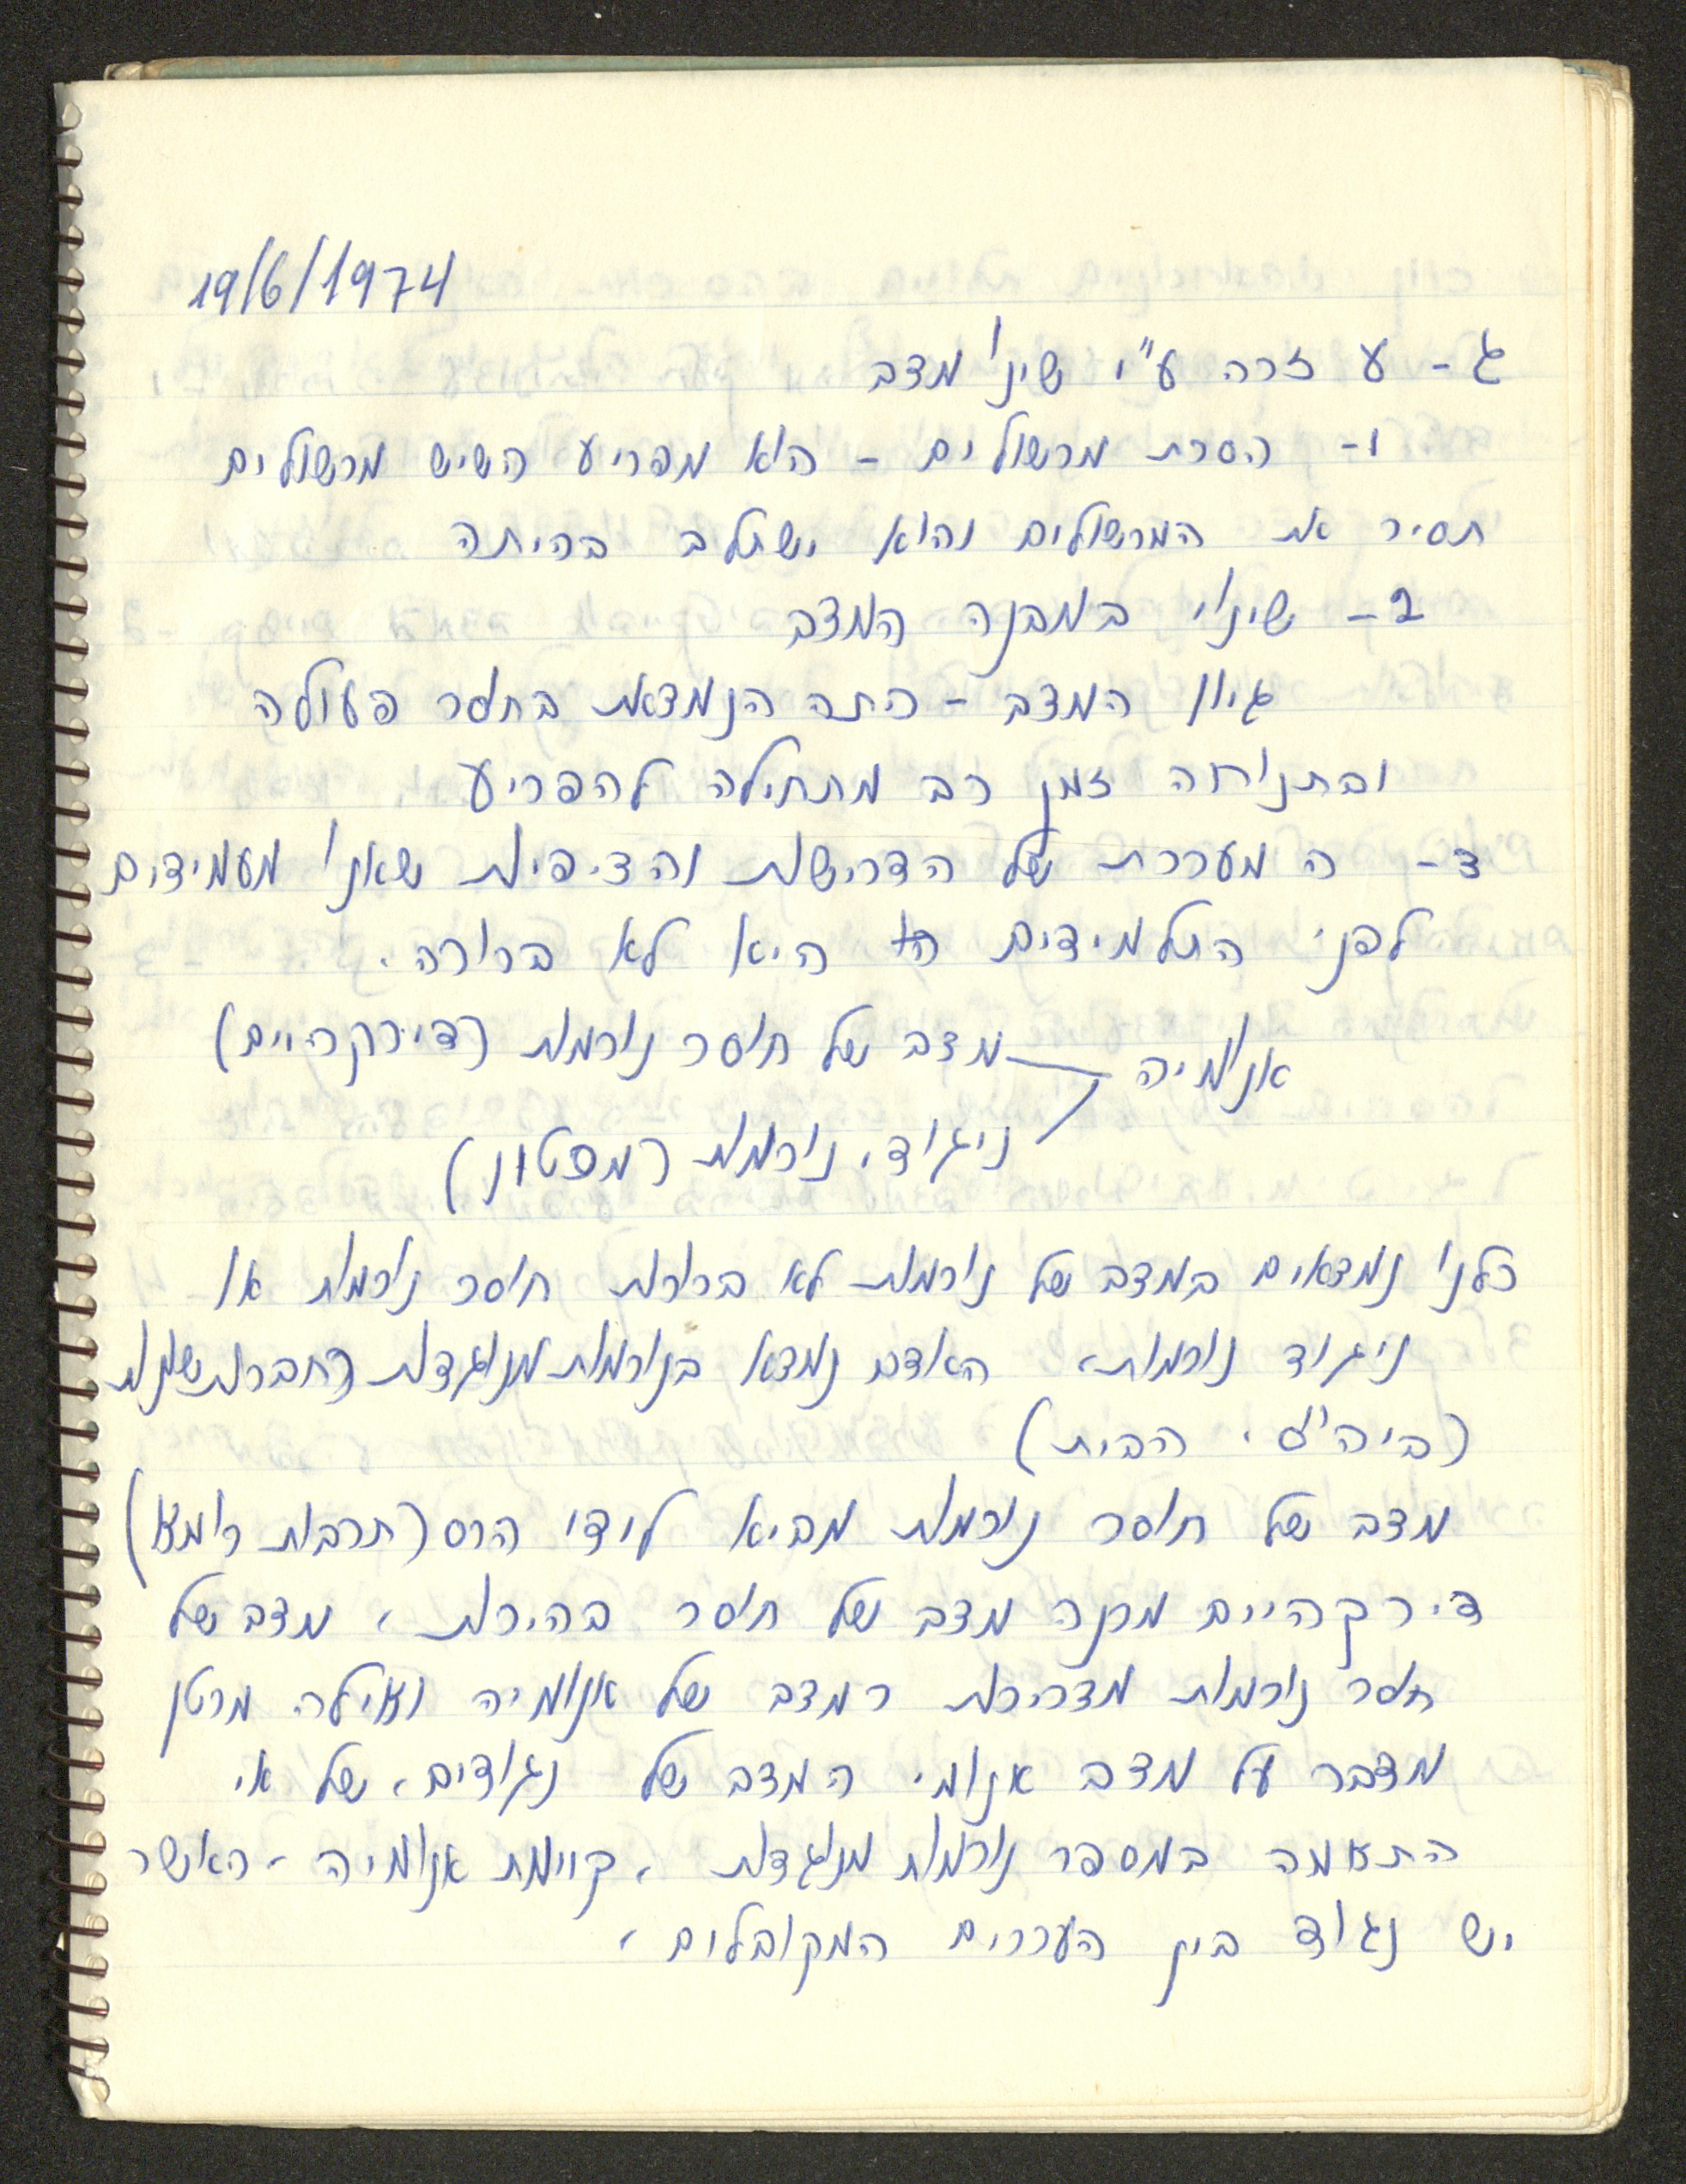 19/6/1974
ג- עזרה ע"י שינוי מצב
1- הסרת מכשולים - הוא מפריע השיש מכשולים
תסיר את המכשולים והוא ישתלב בכיתה
2- שינוי במבנה המצב
גיוון המצב - כתה הנמצאת בחוסר פעולה
ובתנוחה זמן רב מתחילה להפריע
3- המערכת של הדרישות והציפיות שאנו מעמידים
לפני התלמידים היא לא ברורה.
אנומיה מצב של חוסר נורמות (דירקהיים)
ניגודי נורמות (מרטון)
כולנו נמצאים במצב של נורמות לא ברורות חוסר נורמות או
ניגוד נורמות. האדם נמצא בנורמות מנוגדות בחברות שונות
(ביה"ס, הבית)
מצב של חוסר נורמות מביא לידי הרס (תרבות רומא)
דירקהיים מכנה מצב של חוסר בהירות, מצב של
חוסר נורמות מדריכות כמצב של אנומיה ואילו מרטן
מדבר על מצב אנומי המצב של נגודים, של אי
התאמה במספר נורמות מנוגדות, קיימת אנומיה, כאשר
יש נגוד בין הערכים המקובלים,